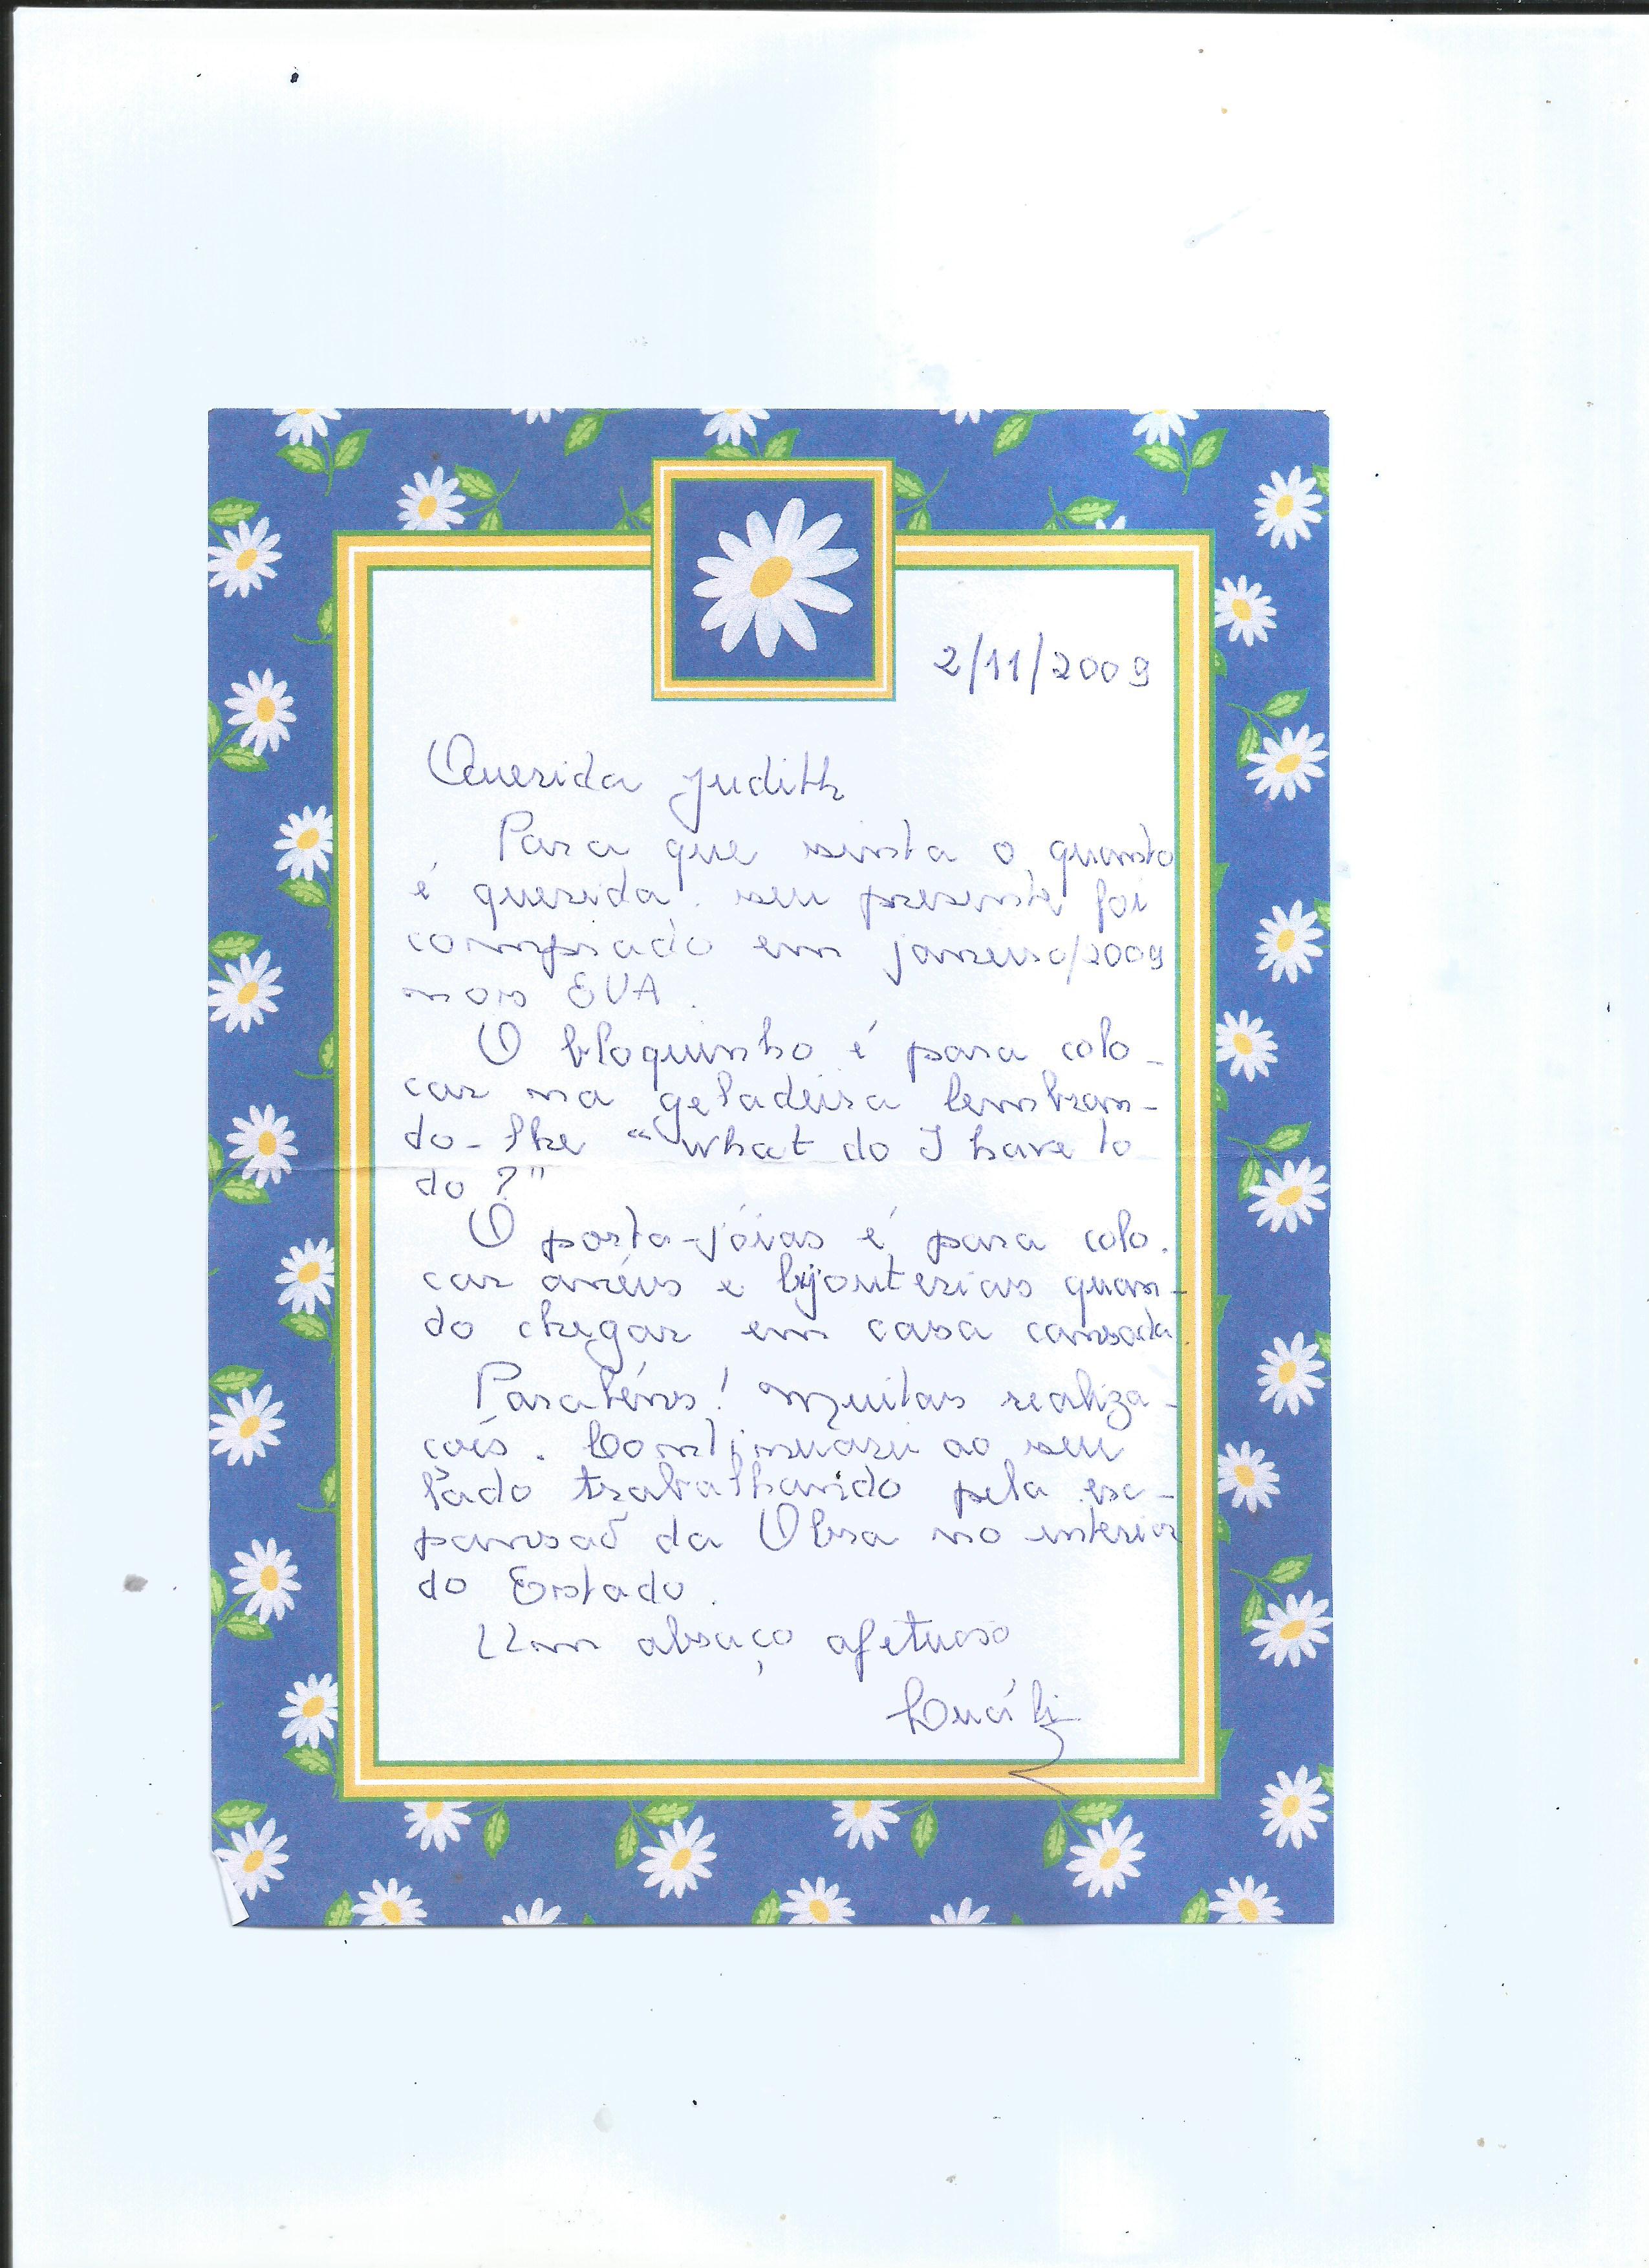 2/11/2009
Querida Judith
Para que sinta o quanto
é querida. seu presente foi
comprado em janeiro/2009
nos EUA.
O bloquinho é para colo-
car na geladeira lembran-
do-lhe "what do I have to
do?"
O porta-jóias é para colo-
car anéis e bijouterias quan-
do chegar em casa cansada.
Parabéns! Muitas realiza-
ções. Continuarei ao seu
lado trabalhando pela ex-
pansão da Obra no interior
do Estado.
Um abraço afetuoso